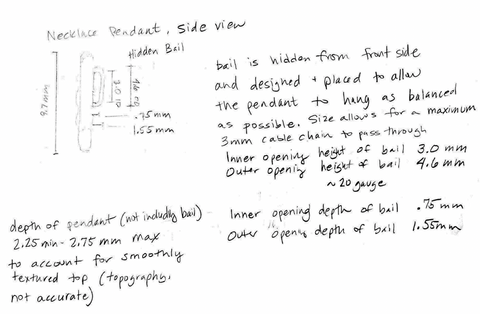 Necklace Pendant, Side view
Hidden Bail
9.7mm
3.0 ID
4.6 OD
.75mm
1.55mm
bail is hidden from front side
and designed + placed to allow
the pendant to hang as balanced
as possible. Size allows for a maximum
3mm cable chain to pass through
Inner opening height of bail 3.0 mm
Outer opening height of bail 4.6 mm
~ 20 gauge
Inner opening depth of bail .75mm
Outer opening depth of bail 1.55mm
depth of pendant (not including bail) -
2.25 min - 2.75 mm max
to account for smoothly
textured top (topography,
not accurate)